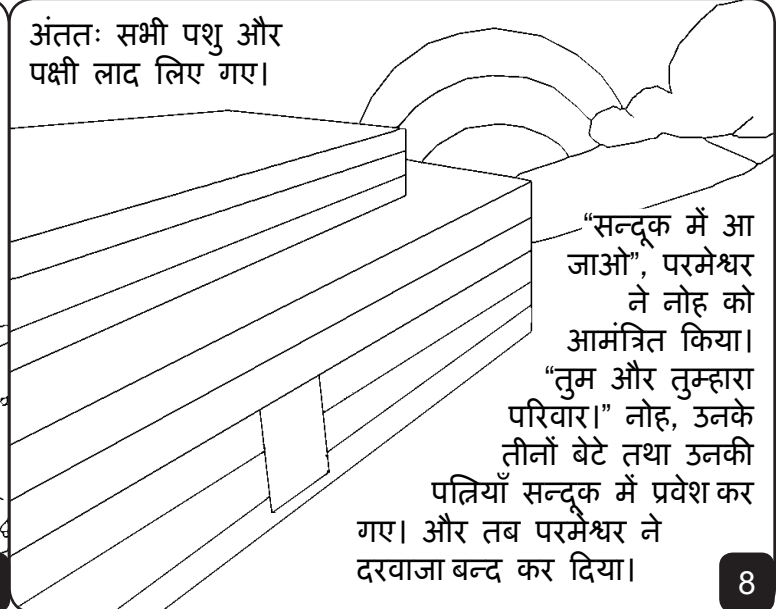 अंततः सभी पशु और
पक्षी लाद लिए गए।
“सन्दूक में आ
जाओ”, परमेश्वर
ने नोह को
आमंत्रित किया।
“तुम और तुम्हारा
परिवार।” नोह, उनके
तीनों बेटे तथा उनकी
पत्नियाँ सन्दूक में प्रवेश कर
गए। और तब परमेश्वर ने
दरवाजा बन्द कर दिया।
8